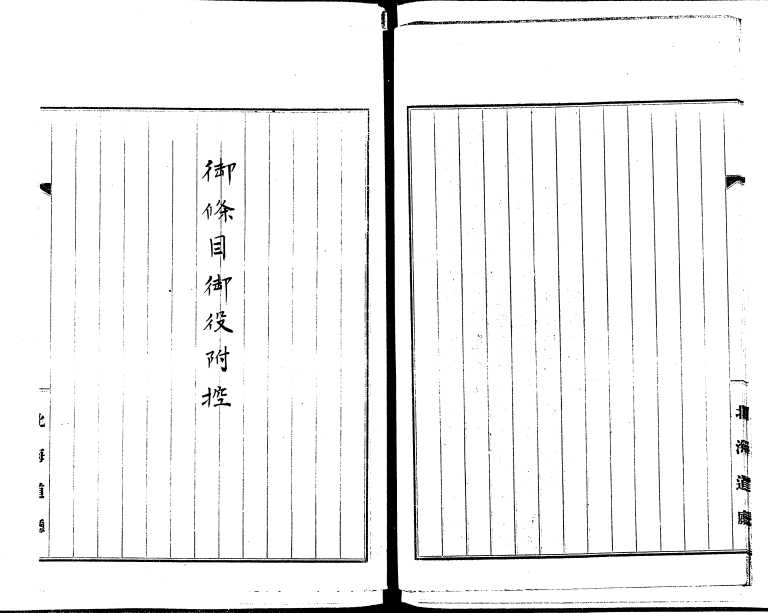 北海道廳
御條目御役附控
北海道廳